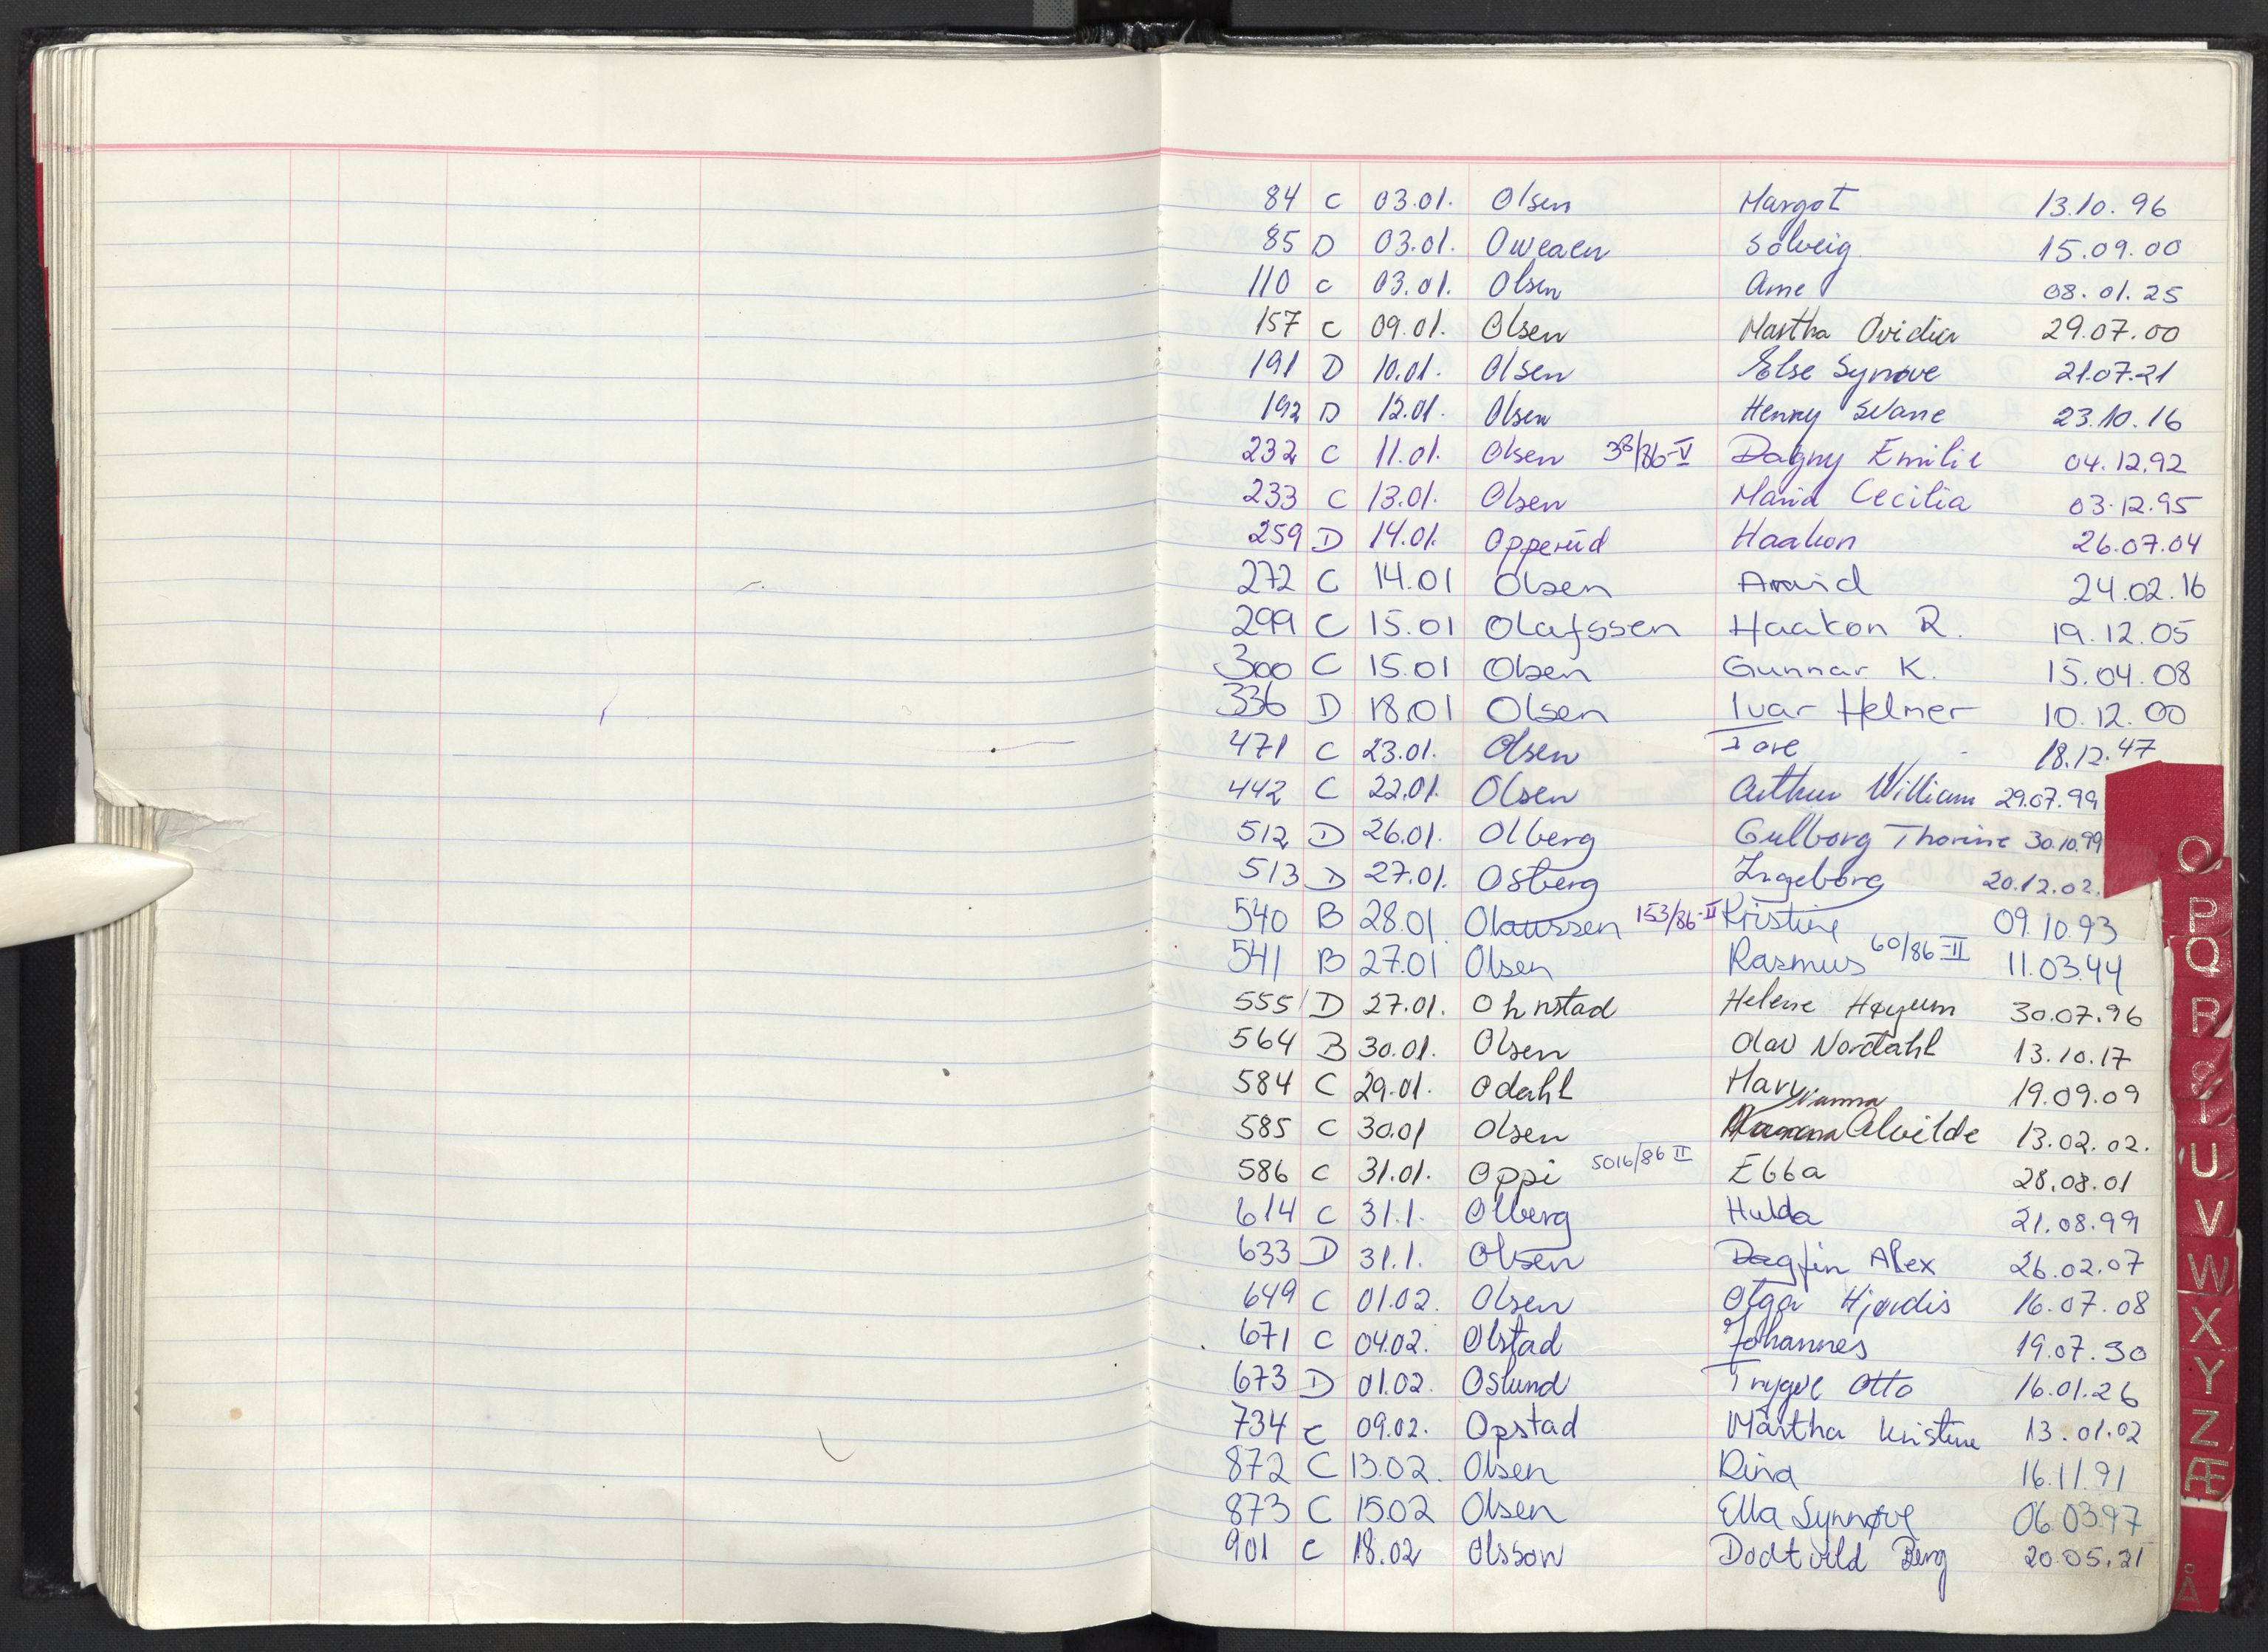 84 C 03.01. Olsen Margot 13.10.96
85 D 03.01. Oweaen Solveig 15.09.00
110 C 03.01. Olsen Arne 08.01.25
157 C 09.01. Olsen Martha Ovidia 29.07.00
191 D 10.01. Olsen Else Synøve 21.07.21
192 D 12.01. Olsen Henry Svane 23.10.16
232 C 11.01. Olsen 38/86-V Dagny Emilie 04.12.92
233 C 13.01. Olsen Maria Cecilia 03.12.95
259 D 14.01. Opperud Haakon 26.07.04
272 C 14.01 Olsen Arvid 24.02.16
299 C 15.01 Olafssen Haakon R. 19.12.05
300 C 15.01 Olsen Gunnar K. 15.04.08
336 D 18.01 Olsen Ivar Helmer 10.12.00
471 C 23.01. Olsen Tore 18.12.47
442 C 22.01. Olsen Arthur William 29.07.99
512 D 26.01. Olberg Gulborg Thorine 30.10.99
513 D 27.01. Osberg Ingeborg 20.12.02.
540 B 28.01. Olaussen 153/86-II Kristine 09.10.93
541 B 27.01 Olsen Rasmus 60/86-II 11.03.44
555 D 27.01. Ohnstad Helene Høyum 30.07.96
564 B 30.01. Olsen Olav Nordahl 13.10.17
584 C 29.01. Odahl Mary 19.09.09
585 C 30.01 Olsen Nanna Alvilde 13.02.02.
586 C 31.01. Oppi 5016/86 II Ebba 28.08.01
614 C 31.1. Olberg Hulda 21.08.99
633 D 31.1. Olsen Dagfin Alex 26.02.07
649 C 01.02. Olsen Olga Hjørdis 16.07.08
671 C 04.02. Olstad Johannes 19.07.30
673 D 01.02. Oslund Trygve Otto 16.01.26
734 C 09.02. Opstad Martha Kristine 13.01.02
872 C 13.02. Olsen Dina 16.11.91
873 C 15.02 Olsen Ella Synnøve 06.03.97
901 C 18.02 Olsson Berg 20.05.21
O
P
Q
R
S
T
U
V
W
X
Y
Z
Æ
Å